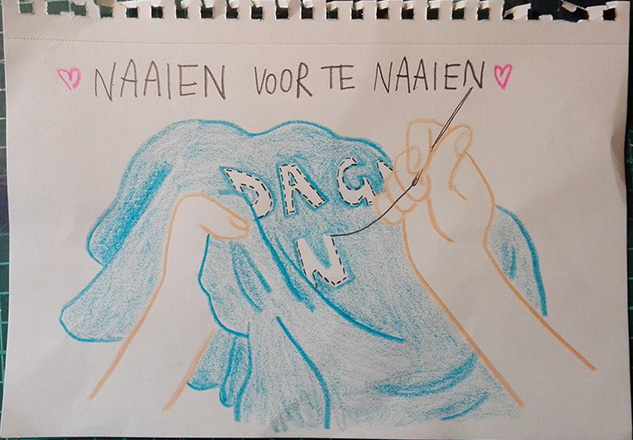 NAAIEN VOOR TE NAAIEN
DAG
N